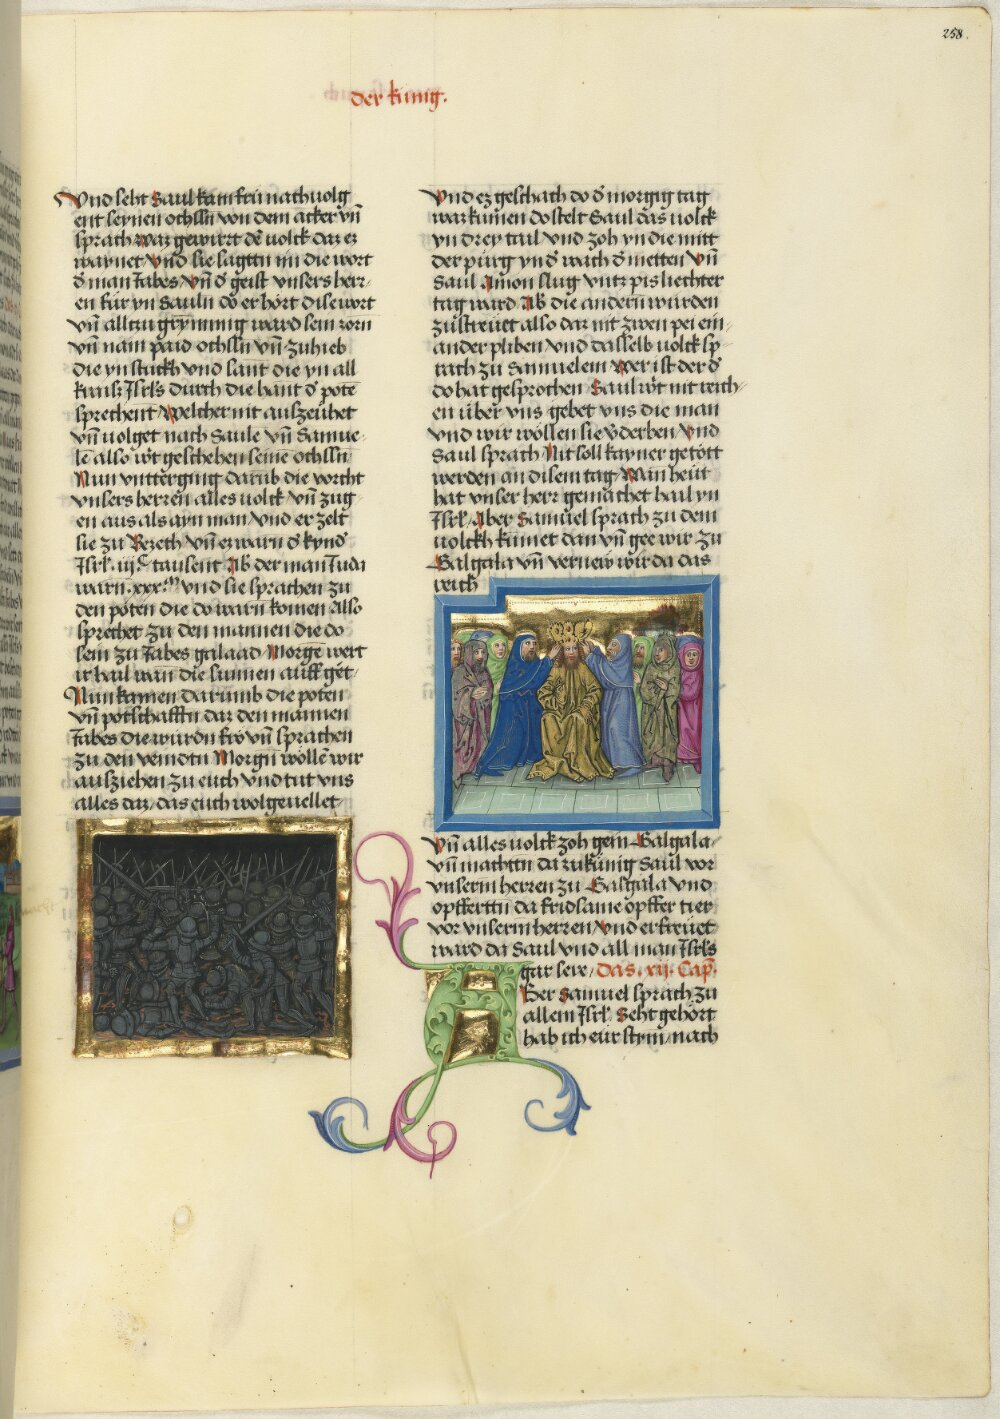 258.
der kunig.
Vnd seht Saul kam fru nachuolg
ent seynen ochssn von dem acker vn̄
sprach waz gewirt dē volck daz ez
waynet vnd sie sagttn im die wort
d̄ man Jabes vn̄ d̄ geist vnsers herr⸗
en fur yn Sauln do er hort dise wort
vn̄ allzu grymmig ward sein zorn
vn̄ nam paid ochssn vn̄ zuhieb
die yn stuckh vnd sant die yn all
krais Isrls durch die hant d̄ pote
sprechent welcher nit auszeuhet
vn̄ uolget nach Saule vn̄ Samue⸗
le also wt geschehen seine ochssn
Nun vntterging darub die vorcht
vnsers herren alles uolck vn̄ zug⸗
en aus als ayn man vnd er zelt
sie zu Bezech vn̄ ez warn d̄ kynd
Isrl .iijC tausent Ab der man Juda
warn .xxx.M vnd sie sprachen zu
den poten die do warn komen Also
sprechet zu den mannen die do
sein zu Jabes galaad Morge wert
ir hail wan die sunnen auff get⸗
Nun kamen darumb die poten
vn̄ potschafftn daz den mannen
Jabes die wurdn fro vn̄ sprachen
zu den veindtn Morgn wollē wir
ausziehen zu euch vnd tut vns
alles daz, das euch wolgeuellet⸗
Vnd ez geschach do d̄ morgig tag
waz kumen do stelt Saul das uolck
yn drey tail vnd zoh yn die mitt
der purg ynd̄ wach d̄ metten vn̄
Saul Amon slug vntz pis liechter
tag ward Ab die andern wurden
zustreuet also daz nit zwen pei ein⸗
ander pliben vnd dasselb uolck sp⸗
rach zu Samuelem wer ist der d̄
do hat gesprochen Saul wt nit reich⸗
en uber vns gebet vns die man
vnd wir wollen sie v̄derben vnd
Saul sprach Nit soll kayner getott
werden an disem tag Wan heut
hat vnser herr gemachet hail yn
Isrl. Aber Samuel sprach zu dem
uolckh kumet dan vn̄ gee wir zu
Galgala vn̄ vernew wir da das
reich
Vn̄ alles uolck zoh gein Galgala⸗
vn̄ machttn da zu kunig Saul vor
vnserm herren zu Galgala vnd
opfferttn da fridsame opffer tier
vor vnserm herren vnd erfreuet
ward da Saul vnd all man Isrls
gar sere, das .xij. Cap̄.
Ber Samuel sprach zu
allem Isrl. Seht gehort
hab ich eur stym, nach